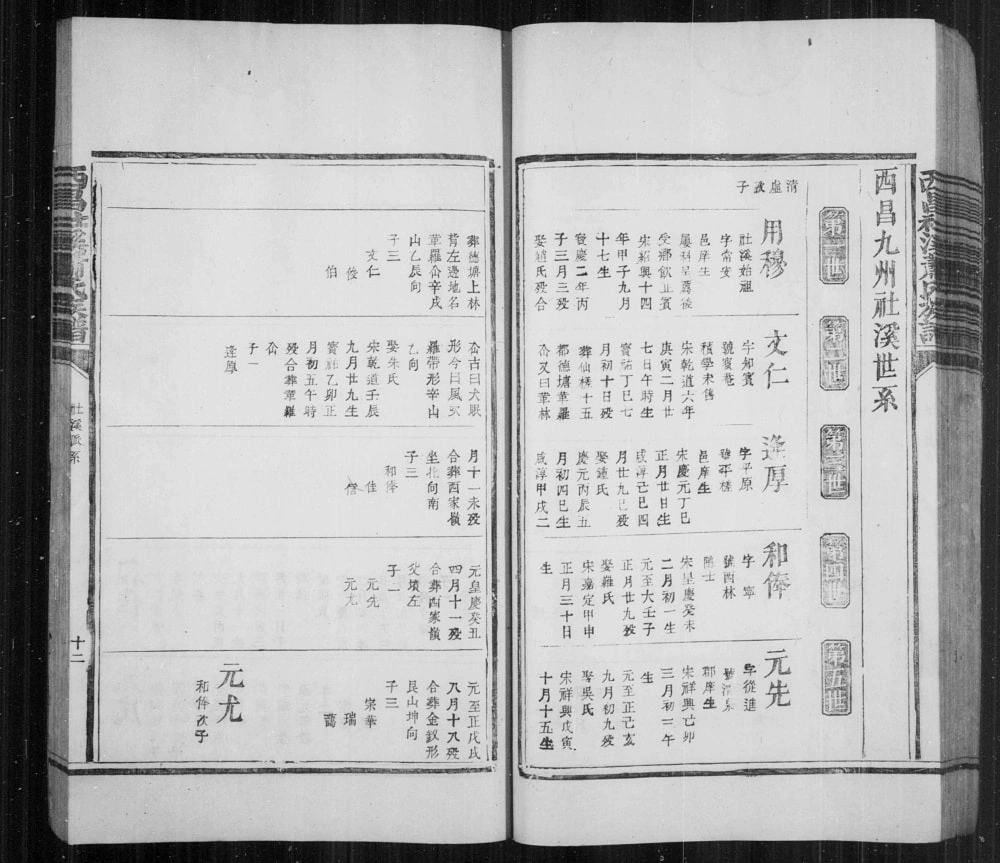 西昌九州社溪世系
第一世
第二世
第三世
第四世
第五世
清虛
子
用穆
社溪始祖
字常安
邑庠生
屢科呈薦後
受鄉飲正賓
宋紹興十四
年甲子九月
十七生
寶慶二年丙
子三月三歿
娶趙氏歿合
葬德塘上林
背左邊地名
葦羅呑辛戌
山乙辰向
子三
文仁
俊
伯
文仁
字知賓
號寶菴
積學未售
宋乾道六年
庚寅二月廿
七日午時生
寶祐丁巳七
月初十日歿
葬仙槎十五
都德塘葦羅
呑又曰葦林
呑古曰犬眠
形今曰風吹
羅帶形辛山
乙向
娶朱氏
宋乾道壬辰
九月廿九生
寶祐乙卯正
月初五午時
歿合葬葦羅
呑
子一
逢厚
逢厚
字平原
號平槎
邑庠生
宋慶元丁巳
正月廿日生
咸淳己巳四
月廿九巳歿
娶鍾氏
慶元丙辰五
月初四巳生
咸淳甲戌二
月十一未歿
合葬西家嶺
坐北向南
子三
和俸
佳
僧
和俸
字寧
號西林
隱士
宋呈慶癸未
二月初一生
元至大壬子
正月廿九歿
娶羅氏
宋嘉定甲申
正月三十日
生
元皇慶癸丑
四月十一歿
合葬西家嶺
父墳左
子一
元先
元尤
元先
字從進
號清泉
郡庠生
宋祥興亡卯
三月初三午
生
元至正己亥
九月初九歿
娶吳氏
宋祥興戊寅
十月十五生
元至正戊戌
八月十八歿
合葬金釵形
艮山坤向
子三
宋華
瑞
藹
元尤
和俸次子
社溪派系
十二